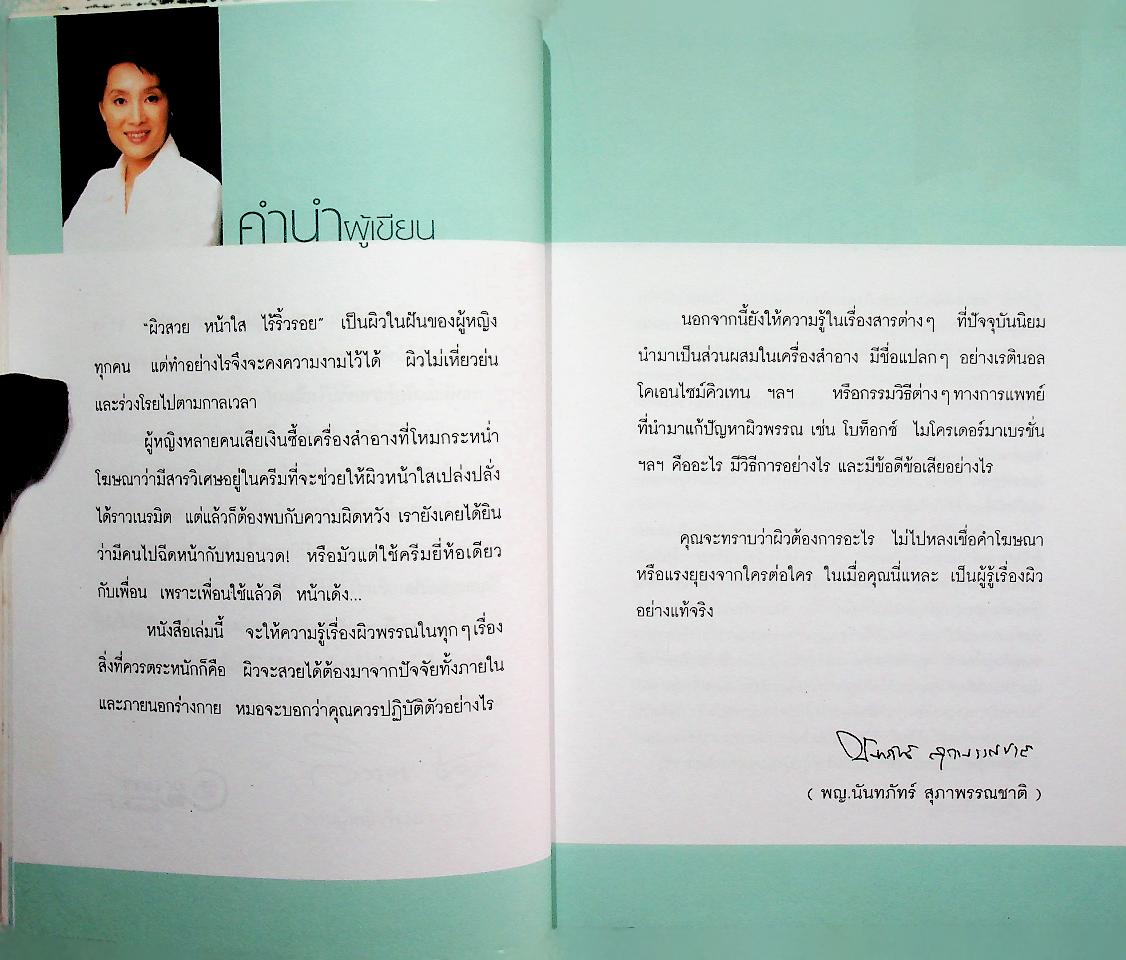 คำนำผู้เขียน
"ผิวสวย หน้าใส ไร้ริ้วรอย" เป็นผิวในฝันของผู้หญิง
ทุกคน แต่ทำอย่างไรจึงจะคงความงามไว้ได้ ผิวไม่เหี่ยวย่น
และร่วงโรยไปตามกาลเวลา
ผู้หญิงหลายคนเสียเงินซื้อเครื่องสำอางที่โหมกระหน่ำ
โฆษณาว่ามีสารวิเศษอยู่ในครีมที่จะช่วยให้ผิวหน้าใสเปล่งปลั่ง
ได้ราวเนรมิต แต่แล้วก็ต้องพบกับความผิดหวัง เรายังเคยได้ยิน
ว่ามีคนไปฉีดหน้ากับหมอนวด! หรือมัวแต่ใช้ครีมยี่ห้อเดียว
กับเพื่อน เพราะเพื่อนใช้แล้วดี หน้าเด้ง...
หนังสือเล่มนี้ จะให้ความรู้เรื่องผิวพรรณในทุกๆเรื่อง
สิ่งที่ควรตระหนักก็คือ ผิวจะสวยได้ต้องมาจากปัจจัยทั้งภายใน
และภายนอกร่างกาย หมอจะบอกว่าคุณควรปฏิบัติตัวอย่างไร
นอกจากนี้ยังให้ความรู้ในเรื่องสารต่างๆ ที่ปัจจุบันนิยม
นำมาเป็นส่วนผสมในเครื่องสำอาง มีชื่อแปลกๆ อย่างเรตินอล
โคเอนไซม์คิวเทน ฯลฯ หรือกรรมวิธีต่างๆทางการแพทย์
ที่นำมาแก้ปัญหาผิวพรรณ เช่น โบท็อกซ์ ไมโครเดอร์มาเบรชั่น
ฯลฯ คืออะไร มีวิธีการอย่างไร และมีข้อดีข้อเสียอย่างไร
คุณจะทราบว่าผิวต้องการอะไร ไม่ไปหลงเชื่อคำโฆษณา
หรือแรงยุยงจากใครต่อใคร ในเมื่อคุณนี่แหละ เป็นผู้รู้เรื่องผิว
อย่างแท้จริง
นันทภัทร์ สุภาพรรณชาติ
( พญ.นันทภัทร์ สุภาพรรณชาติ )